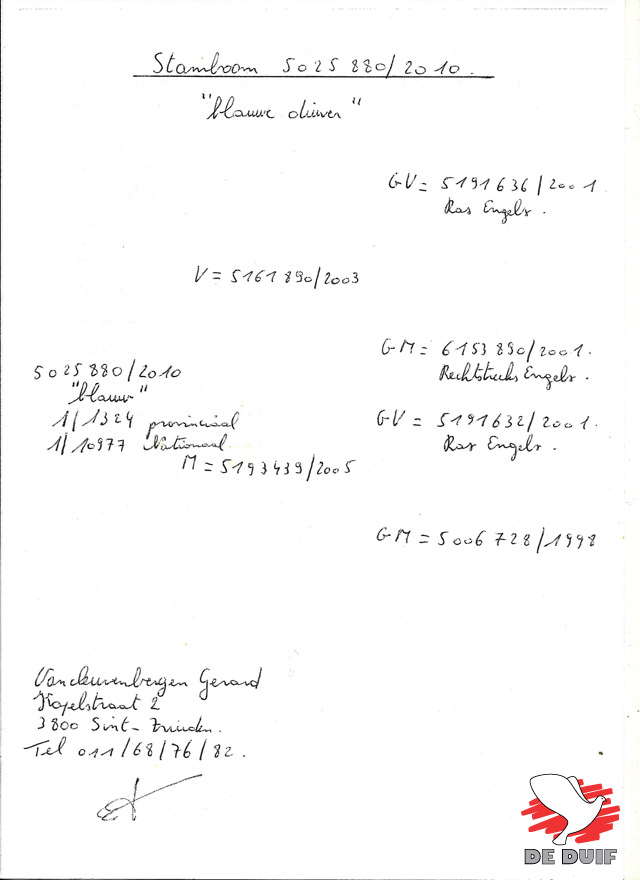 Stamboom 5025880/2010.
"blauwe duiver"
GV = 5191636/2001
Ras Engels.
V = 5161890/2003
GM = 6153890/2001.
Rechtstreeks Engels.
5025880/2010
"blauw"
1/1324 provinciaal
1/10977 Nationaal
GV = 5191632/2001.
Ras Engels.
M = 5193439/2005
GM = 5006728/1998
Gerard
2
3800 Sint-Truiden.
Tel 011/68/76/82.
DE DUIF